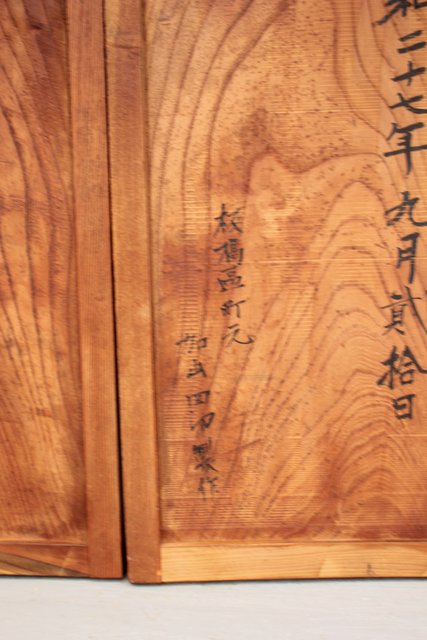 和二十七年九月貳拾日
板橋區町元
製作